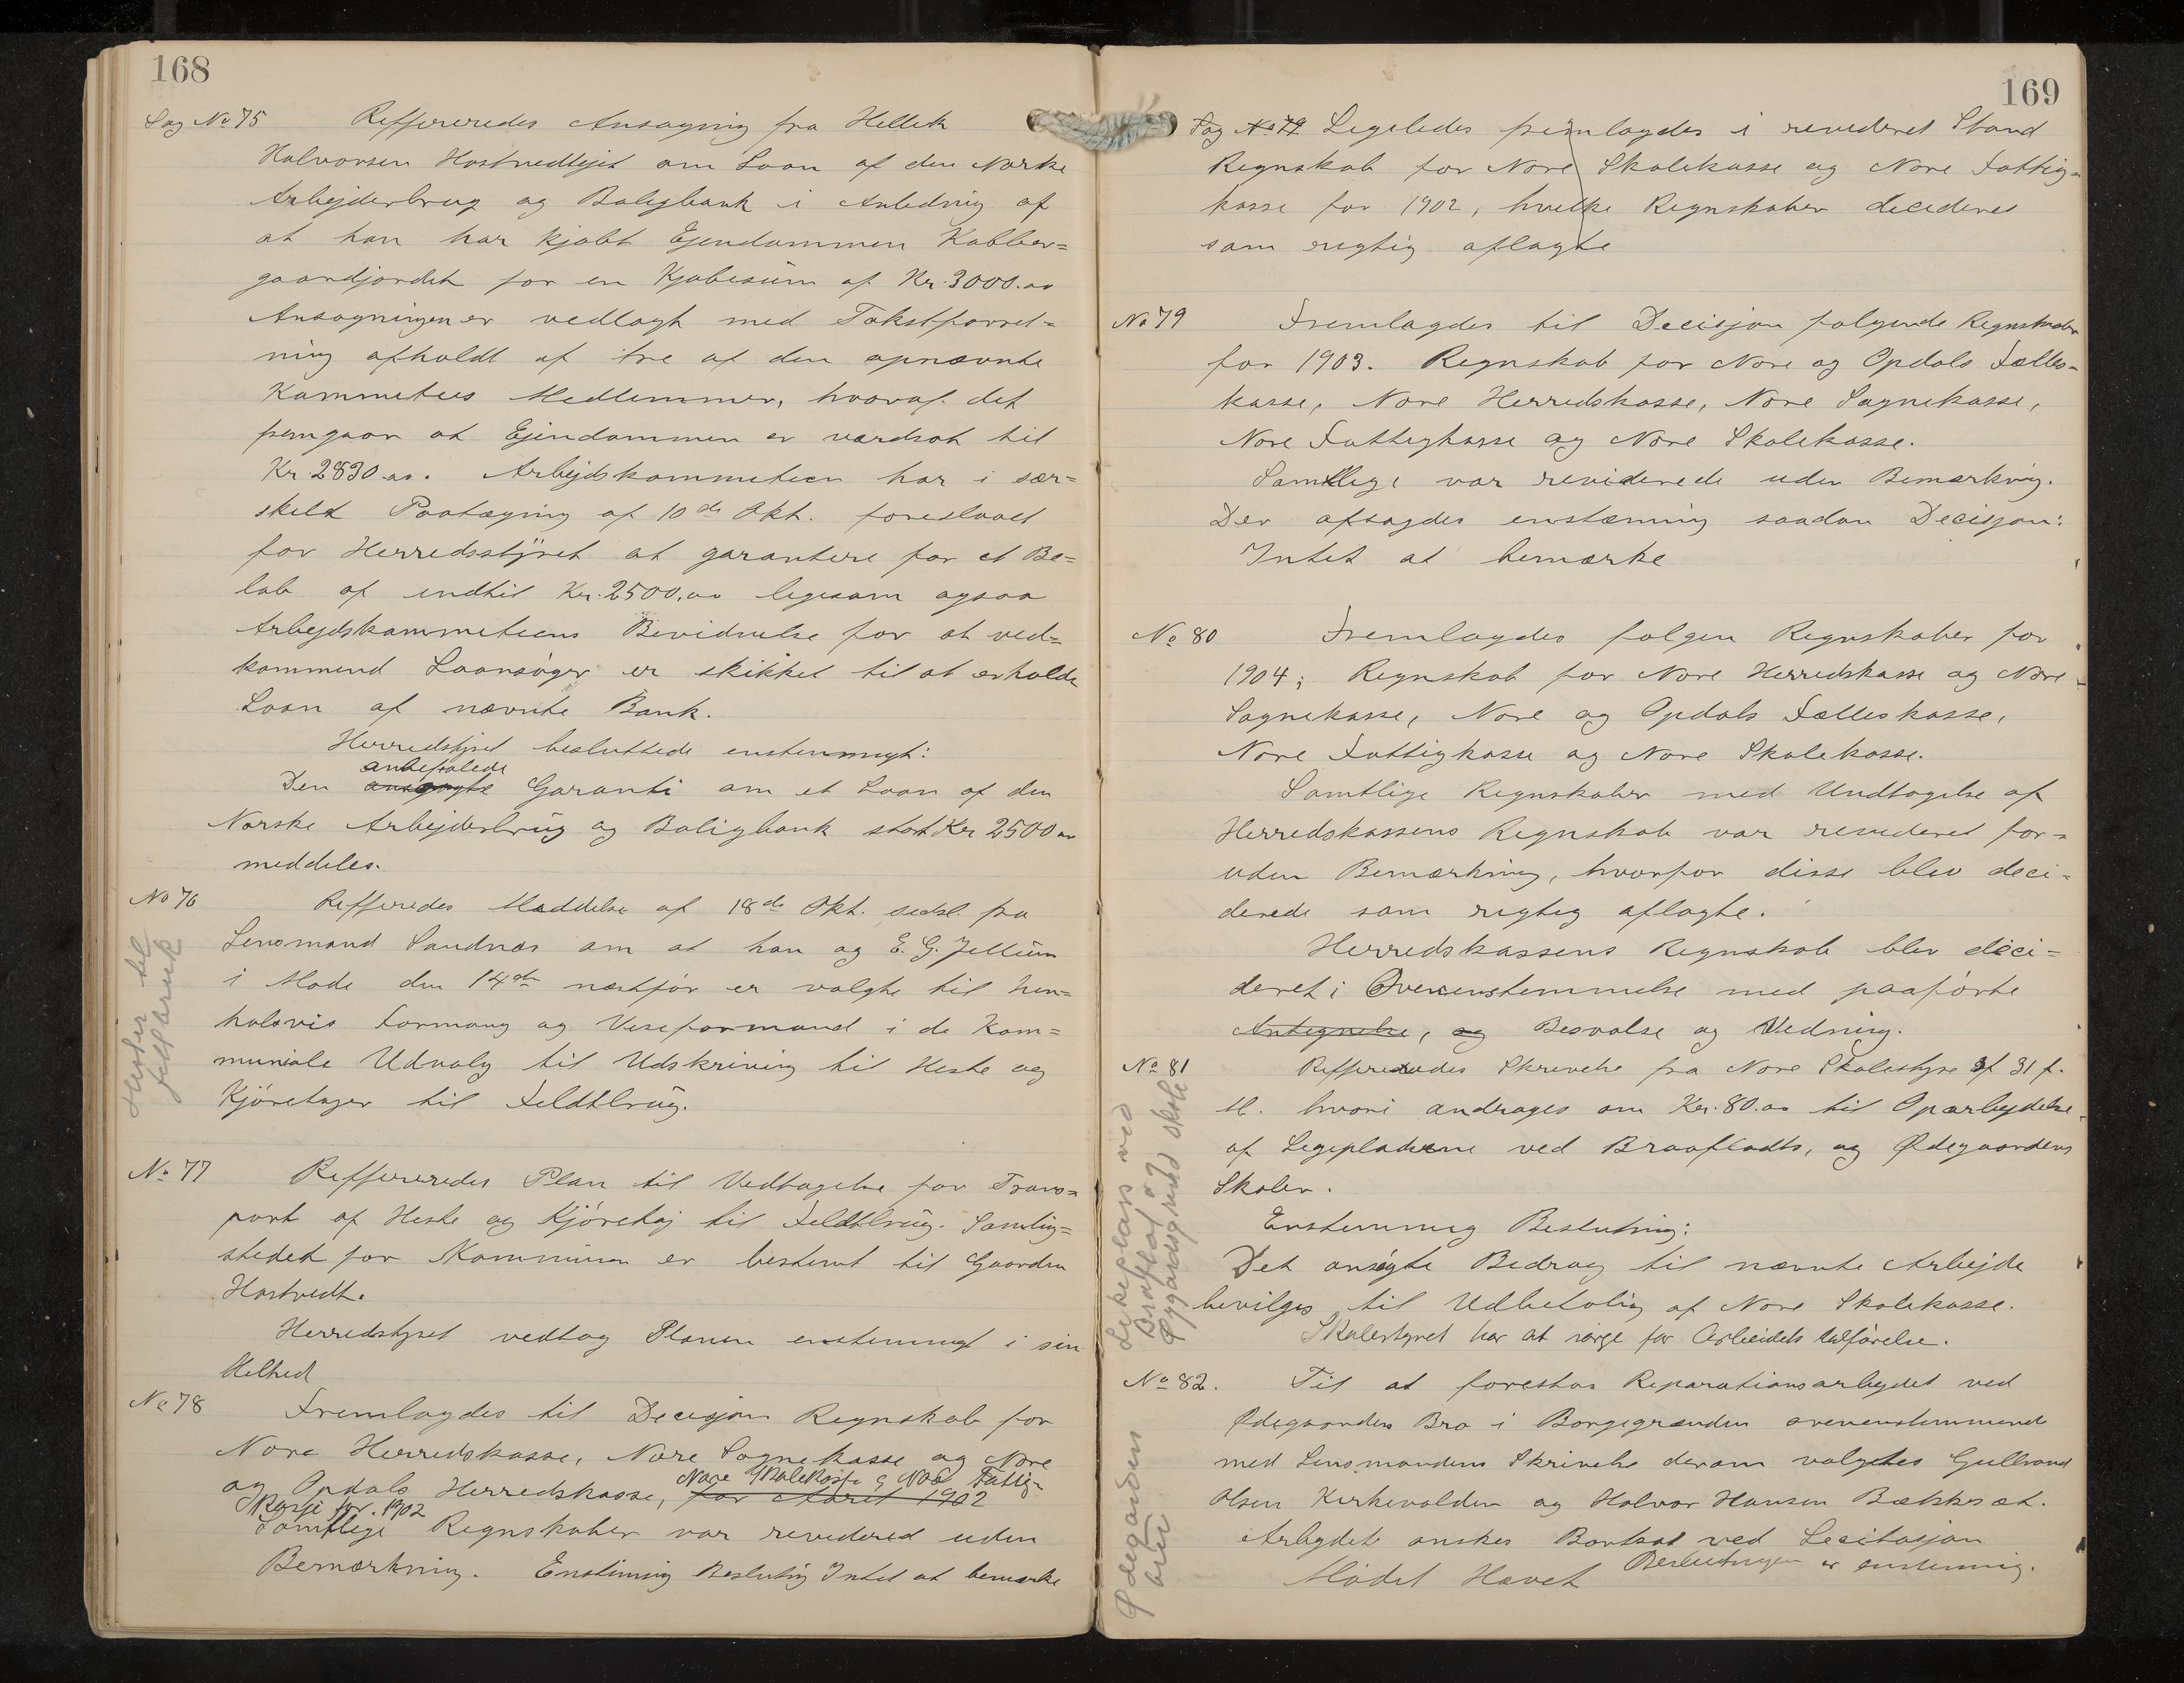 168
Sag No 75 Reffereredes Ansøgning fra Hellek
Halvorsen Hostvedtejet om Laan af den Norske
Arbejderbrug og Boligbank i Anledning af
at han har kjøbt Ejendommen Kobber=
gaardjordet for en Kjøbesum af Kr. 3000.00
Ansøgningen er vedlagt med Takstforret=
ning afholdt af tre af den opnævnte
Kommitees Medlemmer, hvoraf det
fremgaar at Ejendommen er værdsat til
Kr 2830.00. Arbejdskommiteen har i sær=
skeld Paategning af 10de Okt. foreslaaet
for Herredsstyret at garantere for et Be=
løb af indtil Kr. 2500.00 ligesom ogsaa
Arbejdskommiteens Bevidnelse for at ved=
kommend Laansøger er skikket til at erholde
Laan af nævnte Bank.
Herredstyret besluttede enstemmigt:
anbefalede
Den ansøgte Garanti om et Laan af den
Norske Arbejderbrug og Boligbank stort Kr 2500 00
meddeles.
No 76 Refferedes Meddelse af 18de Okt. sidstl. fra
Lensmand Sandnæs om at han og E. G. Jellum
i Møde den 14de næstfør er valgte til hen=
holdsvis Formang og Viseformand i de Kom=
munale Udvalg til Udskrivning til Heste og
Kjøretøyer til Feldtbrug.
Hester til
feltbruk
No 77 Reffereredes Plan til Vedtagelse for Trans=
port af Heste og Kjøretøj til Feldtbrug. Samling=
stedet for Kommunen er bestemt til Gaarden
Hostvedt.
Herredstyret vedtog Planen enstemmigt i sin
Helhed
No 78 Fremlagdes til Decisjon Regnskab for
Nore Herredskasse, Nore Sognekasse og Nore
Nore Skolekasse og Nore Fattig-
og Opdals Herredskasse, for Aaret 1902
Kasse for 1902
Samtlige Regnskaber var revidered uden
Bemærkning. Enstemmig Beslutnig Intet at bemærke
169
Sag No 79 Ligeledes fremlagdes i revideret Stand
Regnskab for Nore Skolekasse og Nore Fattig=
kasse for 1902, hvilke Regnskaber decideres
som rigtig aflagte
No 79 Fremlagdes til Decisjon følgende Regnskaber
for 1903. Regnskab for Nore og Opdals Fælles=
kasse, Nore Herredskasse, Nore Sognekasse,
Nore Fattigkasse og Nore Skolekasse.
Samtlige var reviderede uden Bemærkning.
Der afsagdes enstemmig saadan Decisjon:
Intet at bemærke
No 80 Fremlagdes følgen Regnskaber for
1904; Regnskab for Nore Herredskasse og Nore
Sognekasse, Nore og Opdals Fælleskasse,
Nore Fattigkasse og Nore Skolekasse.
Samtlige Regnskaber med Undtagelse af
Herredskassens Regnskab var revideret for=
uden Bemærkning, hvorfor disse blev deci=
derede som rigtig aflagte.
Herredskassens Regnskab blev deci=
deret i Overensstemmelse med paaførte
Antegnelse, og Besvalse og Vedning.
No 81 Refereredes Skrivelse fra Nore Skolestyre af 31 f.
M. hvori andrages om Kr. 80.00 til Oparbejdelse
af Legepladsene ved Braafladts, og Ødegaardens
Skoler.
Enstemmig Beslutning:
Det ansøgte Bedrag til nævnte Arbejde
bevilges til Udbetaling af Nore Skolekasse.
Skolestyret har at sørge for Arbeidets Udførelse.
Lekeplass ved
Bråflåt og
Øygardsgrend skole
No 82. Til at forestaa Reparationsarbejdet ved
Ødegaardens Bro i Borgegrænden overenstemmende
med Lensmandens Skrivelse derom valgtes Gullvand
Olsen Kirkevolden og Halvor Hansen Bækkesæt.
Arbejdet ønskes Bortsat ved Lecitasjon
Beslutningen er enstemmig.
Mødet Hævet
Ødegårdens
bru